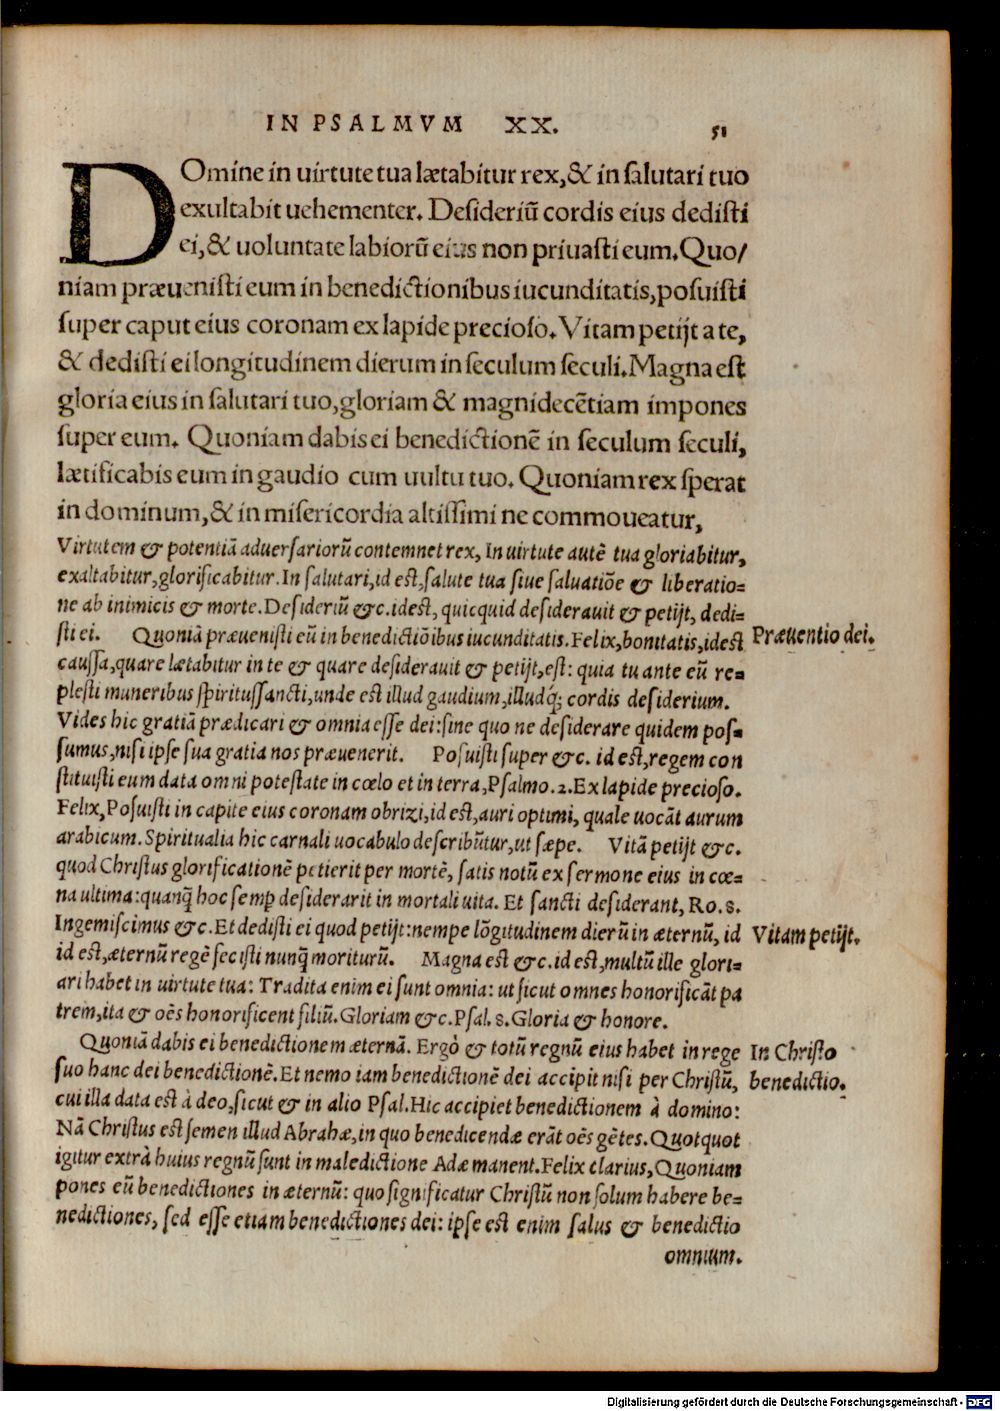 IN PSALMVM XX. 51
DOmine in uirtute tua lætabitur rex, & in salutari tuo
exultabit uehementer. Desideriũ cordis eius dedisti
ei, & uoluntate labiorũ eius non priuasti eum. Quo/
niam præuenisti eum in benedictionibus iucunditatis, posuisti
super caput eius coronam ex lapide precioso. Vitam petijt a te,
& dedisti ei longitudinem dierum in seculum seculi. Magna est
gloria eius in salutari tuo, gloriam & magnidecẽtiam impones
super eum. Quoniam dabis ei benedictionẽ in seculum seculi,
lætificabis eum in gaudio cum uultu tuo. Quoniam rex sperat
in dominum, & in misericordia altissimi ne commoueatur,
Virtutem & potentiã aduersariorũ contemnet rex, In uirtute autẽ tua gloriabitur,
exaltabitur, glorificabitur. In salutari, id est, salute tua siue saluatiõe & liberatio=
ne ab inimicis & morte. Desideriũ &c. idest, quicquid desiderauit & petijt, dedi=
sti ei. Quoniã præuenisti eũ in benedictiõibus iucunditatis. Felix, bonitatis, idest
Præuentio dei.
caussa, quare lætabitur in te & quare desiderauit & petijt, est: quia tu ante eũ re=
plesti muneribus spiritussancti, unde est illud gaudium, illudq́; cordis desiderium.
Vides hic gratiã prædicari & omnia esse dei: sine quo ne desiderare quidem pos=
sumus, nisi ipse sua gratia nos præuenerit. Posuisti super &c. id est, regem con
stituisti eum data omni potestate in cœlo et in terra, Psalmo. 2. Ex lapide precioso.
Felix, Posuisti in capite eius coronam obrizi, id est, auri optimi, quale uocãt aurum
arabicum. Spiritualia hic carnali uocabulo describũtur, ut sæpe. Vitã petijt &c.
quod Christus glorificationẽ petierit per mortẽ, satis notũ ex sermone eius in cœ=
na ultima: quanq̃ hoc semp desiderarit in mortali uita. Et sancti desiderant, Ro. 8.
Ingemiscimus &c. Et dedisti ei quod petijt: nempe lõgitudinem dierũ in æternũ, id
Vitam petijt.
id est, æternũ regẽ fecisti nunq̃ moriturũ. Magna est &c. id est, multũ ille glori=
ari habet in uirtute tua: Tradita enim ei sunt omnia: ut sicut omnes honorificãt pa
trem, ita & oẽs honorificent filiũ. Gloriam &c. Psal. 8. Gloria & honore.
Quoniã dabis ei benedictionem æternã. Ergò & totũ regnũ eius habet in rege
In Christo
suo hanc dei benedictionẽ. Et nemo iam benedictionẽ dei accipit nisi per Christũ,
benedictio.
cui illa data est à deo, sicut & in alio Psal. Hic accipiet benedictionem à domino:
Nã Christus est semen illud Abrahæ, in quo benedicendæ erãt oẽs gẽtes. Quotquot
igitur extrà huius regnũ sunt in maledictione Adæ manent. Felix clarius, Quoniam
pones eũ benedictiones in æternũ: quo significatur Christũ non solum habere be=
nedictiones, sed esse etiam benedictiones dei: ipse est enim salus & benedictio
omnium.
Digitalisierung gefördert durch die Deutsche Forschungsgemeinschaft - DFG